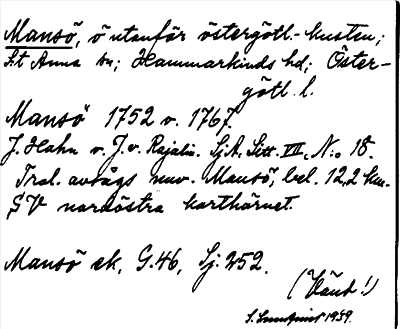 Mansö, ö utanför östergötl.-kusten;
S:t Anna sn; Hammarkinds hd; Öster-
götl. l.
Mansö 1752 v. 1767.
J. Hahn v. J. v. Rajalin. SjA. Litt. VII, N:o 18.
Trol. avsågs nuv. Mansö, bel. 12,2 km.
SV nordöstra karthörnet.
Mansö ek, G.46, Sj. 252.
(Vänd!)
1939.